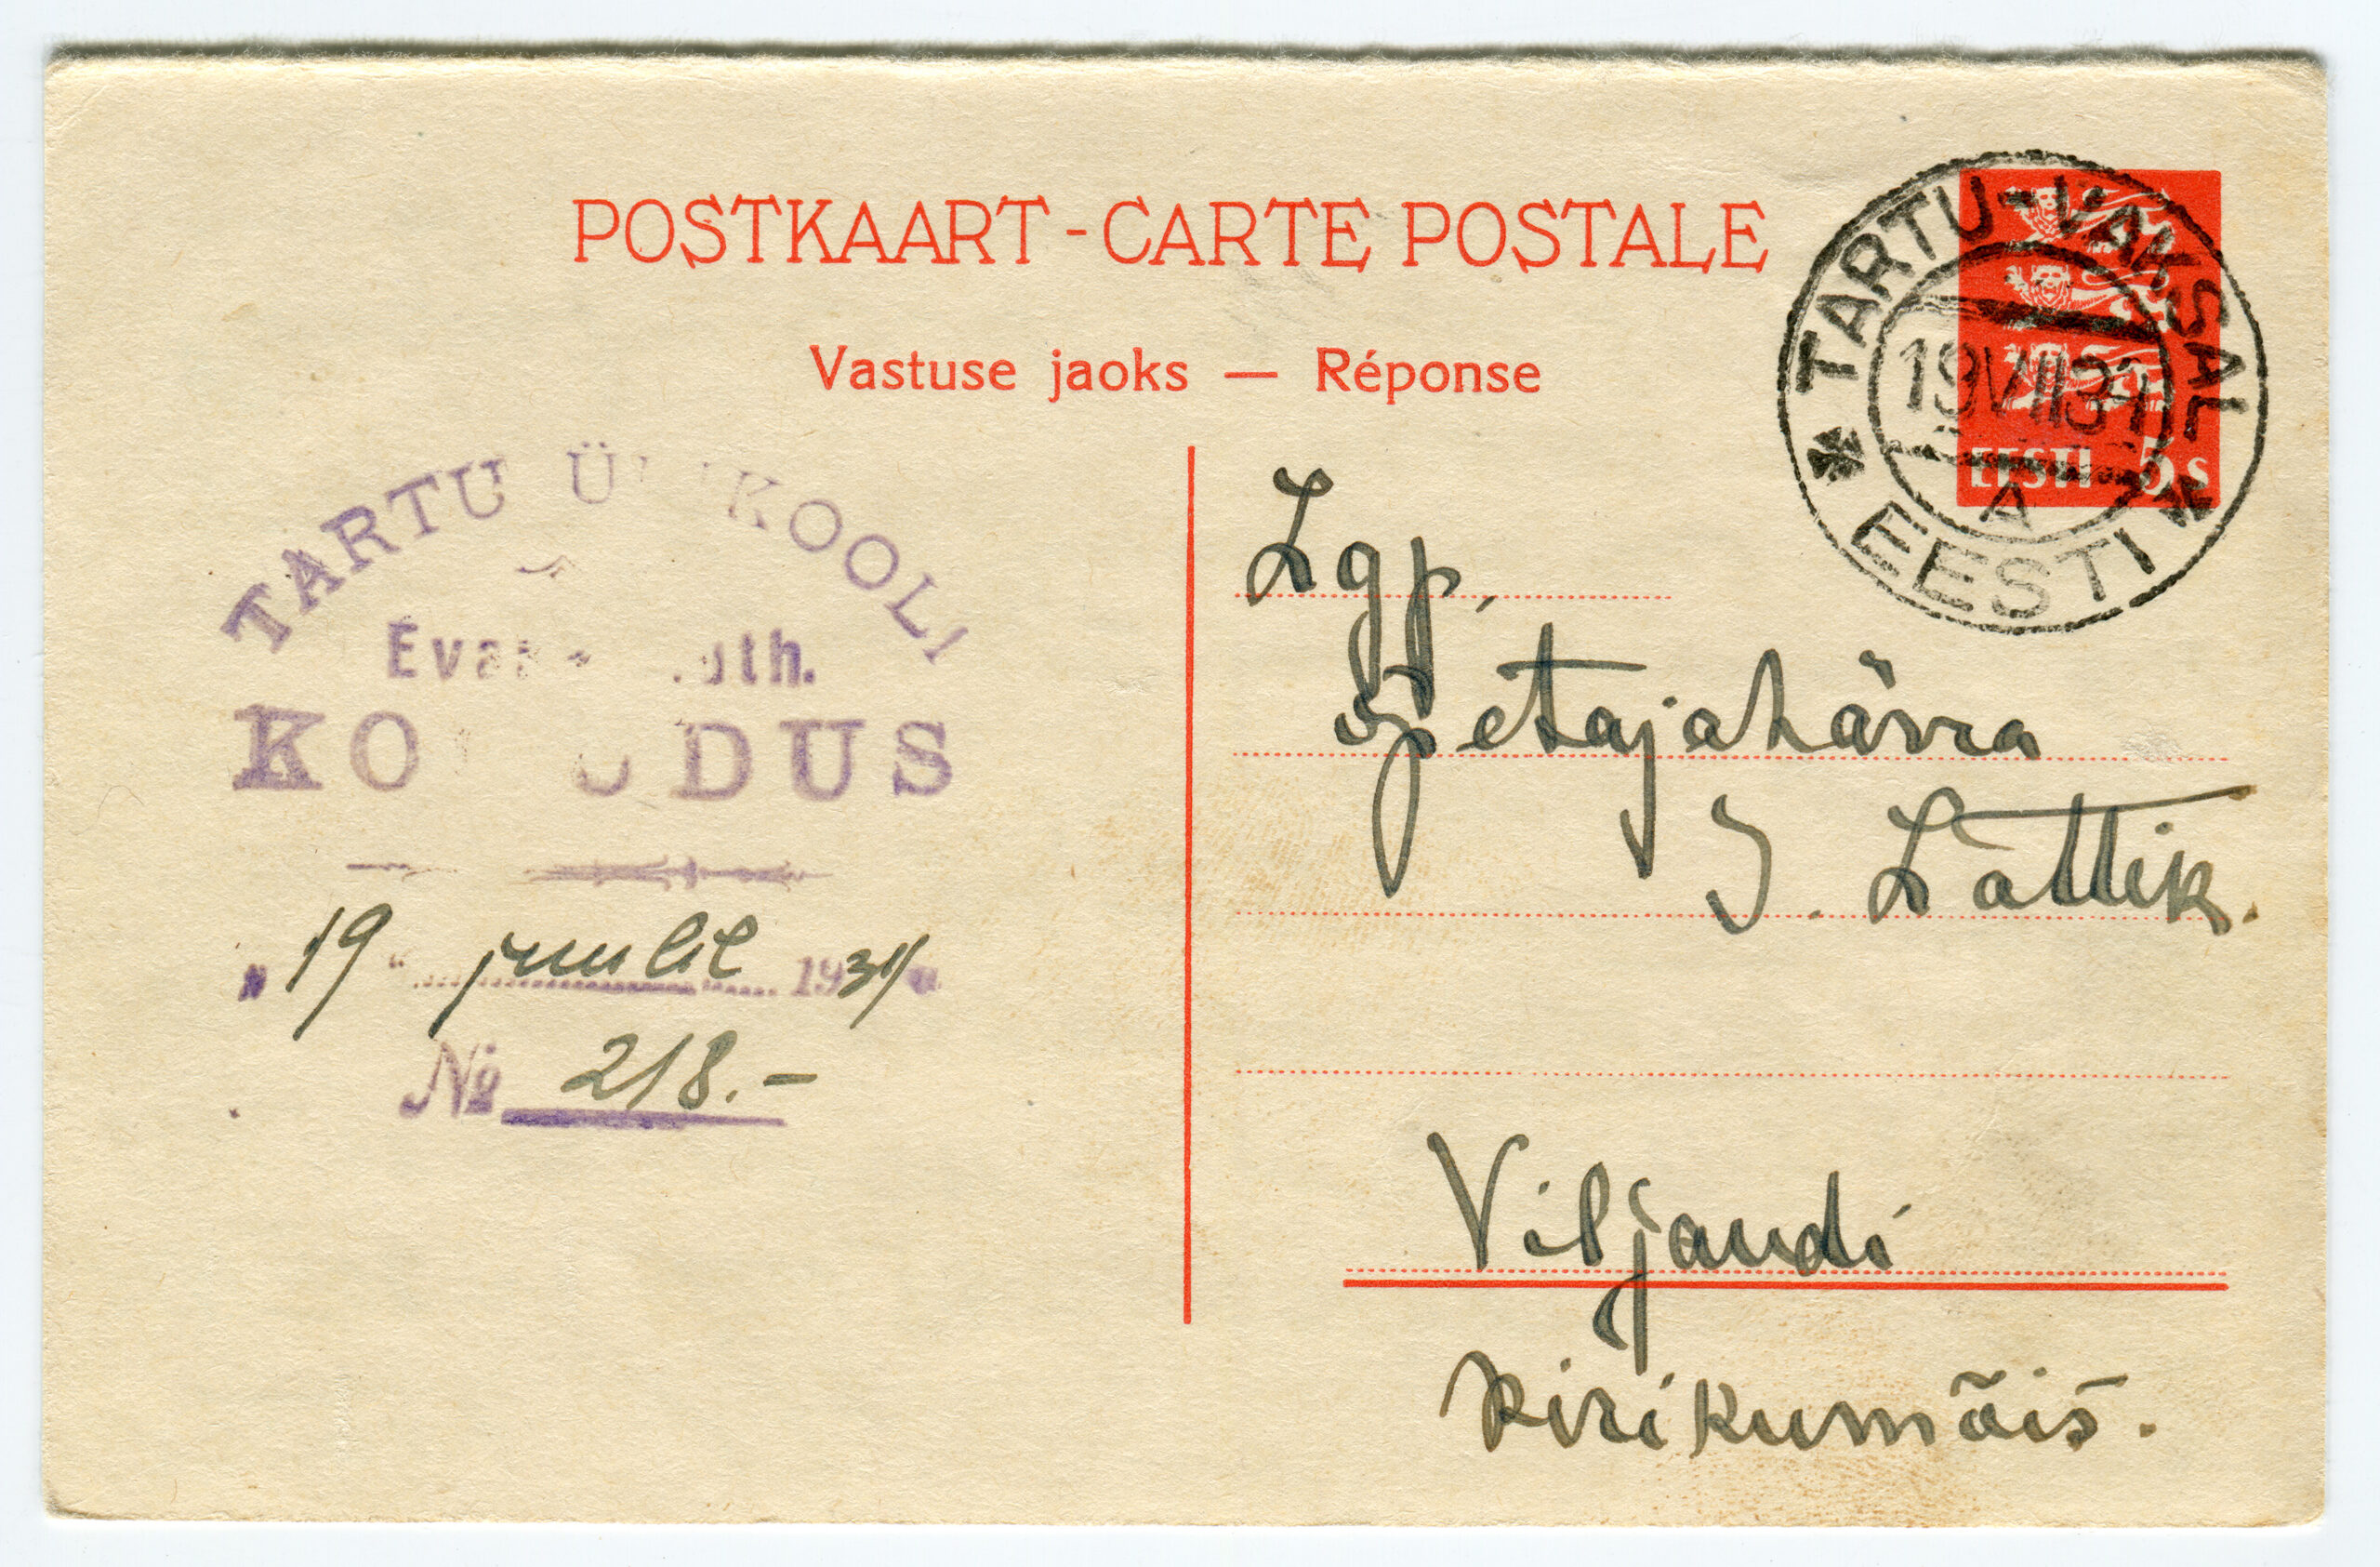 POSTKAART - CARTE POSTALE
Vastuse jaoks — Réponse
TARTU-VAKSAL
19 VII 34
EESTI 5 s
A
EESTI
TARTU ÜLIKOOLI
KOGUDUS
„ 19 “ juulil 1934
№ 218.-
Lgp.
õpetajahärra
J. Lattik.
Viljandi
Kirikumõis.